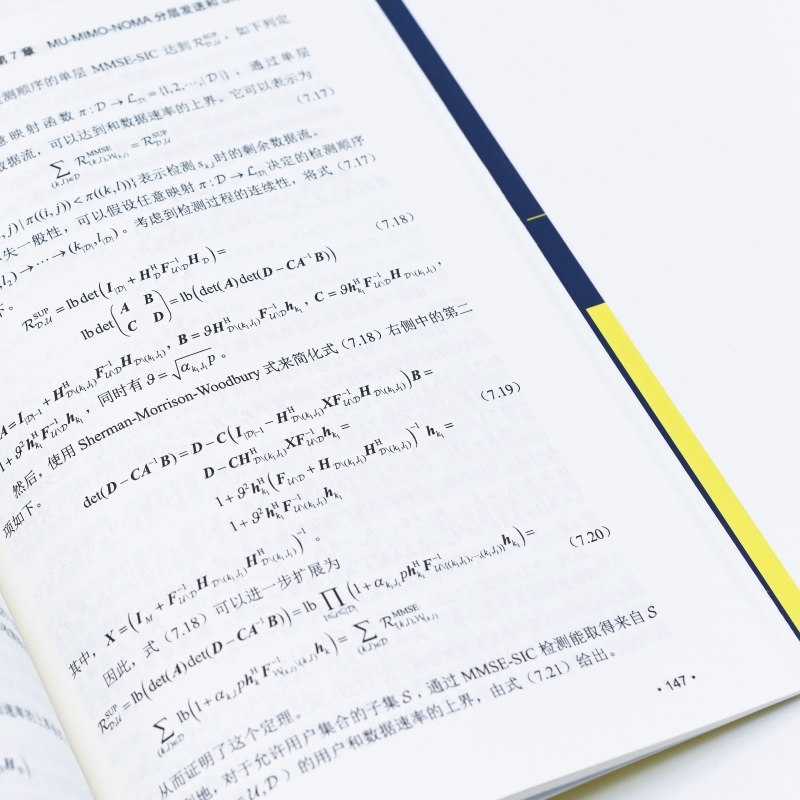 第 7 章 MU-MIMO-NOMA 分层发送和
测顺序的单层 MMSE-SIC 达到 $\mathcal{R}_{\mathcal{D},\mathcal{U}}^{\mathrm{SUP}}$,如下列定
意映射函数 $\pi:\mathcal{D}\to\mathcal{L}_{|\mathcal{D}|}=\{1,2,\cdots,|\mathcal{D}|\}$,通过单层
数据流,可以达到和数据速率的上界。它可以表示为
$\sum_{(k,l)\in\mathcal{D}}\mathcal{R}_{(k,l),\mathcal{W}_{(k,l)}}^{\mathrm{MMSE}}=\mathcal{R}_{\mathcal{D},\mathcal{U}}^{\mathrm{SUP}}$ (7.17)
$,j)|\pi((i,j))<\pi((k,l))\}$ 表示检测 $s_{k,l}$ 时的剩余数据流。
失一般性,可以假设任意映射 $\pi:\mathcal{D}\to\mathcal{L}_{|\mathcal{D}|}$ 决定的检测顺序
$,l_2)\to\cdots\to(k_{|\mathcal{D}|},l_{|\mathcal{D}|})$。考虑到检测过程的连续性,将式(7.17)
下。
$\mathcal{R}_{\mathcal{D},\mathcal{U}}^{\mathrm{SUP}}=\mathrm{lb}\det\left(I_{|\mathcal{D}|}+H_{\mathcal{D}}^{\mathrm{H}}F_{\mathcal{U}\setminus\mathcal{D}}^{-1}H_{\mathcal{D}}\right)=$ (7.18)
$\mathrm{lb}\det\begin{pmatrix}A&B\\C&D\end{pmatrix}=\mathrm{lb}\left(\det(A)\det(D-CA^{-1}B)\right)$
$A=I_{|\mathcal{D}|-1}+H_{\mathcal{D}\setminus(k_1,l_1)}^{\mathrm{H}}F_{\mathcal{U}\setminus\mathcal{D}}^{-1}H_{\mathcal{D}\setminus(k_1,l_1)}$,$B=\vartheta H_{\mathcal{D}\setminus(k_1,l_1)}^{\mathrm{H}}F_{\mathcal{U}\setminus\mathcal{D}}^{-1}h_{k_1}$,$C=\vartheta h_{k_1}^{\mathrm{H}}F_{\mathcal{U}\setminus\mathcal{D}}^{-1}H_{\mathcal{D}\setminus(k_1,l_1)}$,
$1+\vartheta^2h_{k_1}^{\mathrm{H}}F_{\mathcal{U}\setminus\mathcal{D}}^{-1}h_{k_1}$,同时有 $\vartheta=\sqrt{\alpha_{k_1,l_1}p}$。
然后,使用 Sherman-Morrison-Woodbury 式来简化式(7.18)右侧中的第二
项如下。
$\det(D-CA^{-1}B)=D-C\left(I_{|\mathcal{D}|-1}-H_{\mathcal{D}\setminus(k_1,l_1)}^{\mathrm{H}}XF_{\mathcal{U}\setminus\mathcal{D}}^{-1}H_{\mathcal{D}\setminus(k_1,l_1)}\right)B=$ (7.19)
$D-CH_{\mathcal{D}\setminus(k_1,l_1)}^{\mathrm{H}}XF_{\mathcal{U}\setminus\mathcal{D}}^{-1}h_{k_1}=$
$1+\vartheta^2h_{k_1}^{\mathrm{H}}\left(F_{\mathcal{U}\setminus\mathcal{D}}+H_{\mathcal{D}\setminus(k_1,l_1)}H_{\mathcal{D}\setminus(k_1,l_1)}^{\mathrm{H}}\right)^{-1}h_{k_1}=$
$1+\vartheta^2h_{k_1}^{\mathrm{H}}F_{\mathcal{U}\setminus\mathcal{D}}^{-1}h_{k_1}$
其中,$X=\left(I_M+F_{\mathcal{U}\setminus\mathcal{D}}^{-1}H_{\mathcal{D}\setminus(k_1,l_1)}H_{\mathcal{D}\setminus(k_1,l_1)}^{\mathrm{H}}\right)^{-1}$。
因此,式(7.18)可以进一步扩展为
$\mathcal{R}_{\mathcal{D},\mathcal{U}}^{\mathrm{SUP}}=\mathrm{lb}\left(\det(A)\det(D-CA^{-1}B)\right)=\mathrm{lb}\prod_{1\leq i\leq|\mathcal{D}|}\left(1+\alpha_{k_i,l_i}ph_{k_i}^{\mathrm{H}}F_{\mathcal{U}\setminus\{(k_1,l_1),\cdots,(k_i,l_i)\}}^{-1}h_{k_i}\right)=$ (7.20)
$\sum_{(k,l)\in\mathcal{D}}\mathrm{lb}\left(1+\alpha_{k,l}ph_k^{\mathrm{H}}F_{\mathcal{W}_{(k,l)}\setminus(k,l)}^{-1}h_k\right)=\sum_{(k,l)\in\mathcal{D}}\mathcal{R}_{(k,l),\mathcal{W}_{(k,l)}}^{\mathrm{MMSE}}$
从而证明了这个定理。
别地,对于允许用户集合的子集 $\mathcal{S}$,通过 MMSE-SIC 检测能取得来自 $\mathcal{S}$
$=\mathcal{U},\mathcal{D}$)的用户和数据速率的上界,由式(7.21)给出。
·147·